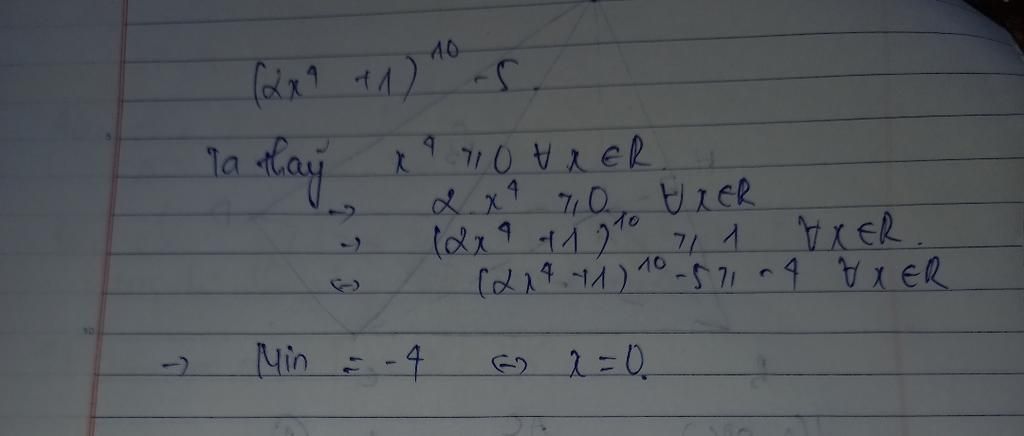 (2x⁴ + 1)¹⁰ - 5.
Ta thấy x⁴ ≥ 0 ∀ x ∈ R.
→ 2.x⁴ ≥ 0 ∀ x ∈ R
→ (2x⁴ + 1)¹⁰ ≥ 1 ∀ x ∈ R.
⇔ (2x⁴ + 1)¹⁰ - 5 ≥ -4 ∀ x ∈ R
→ Min = -4 ⇔ x = 0.